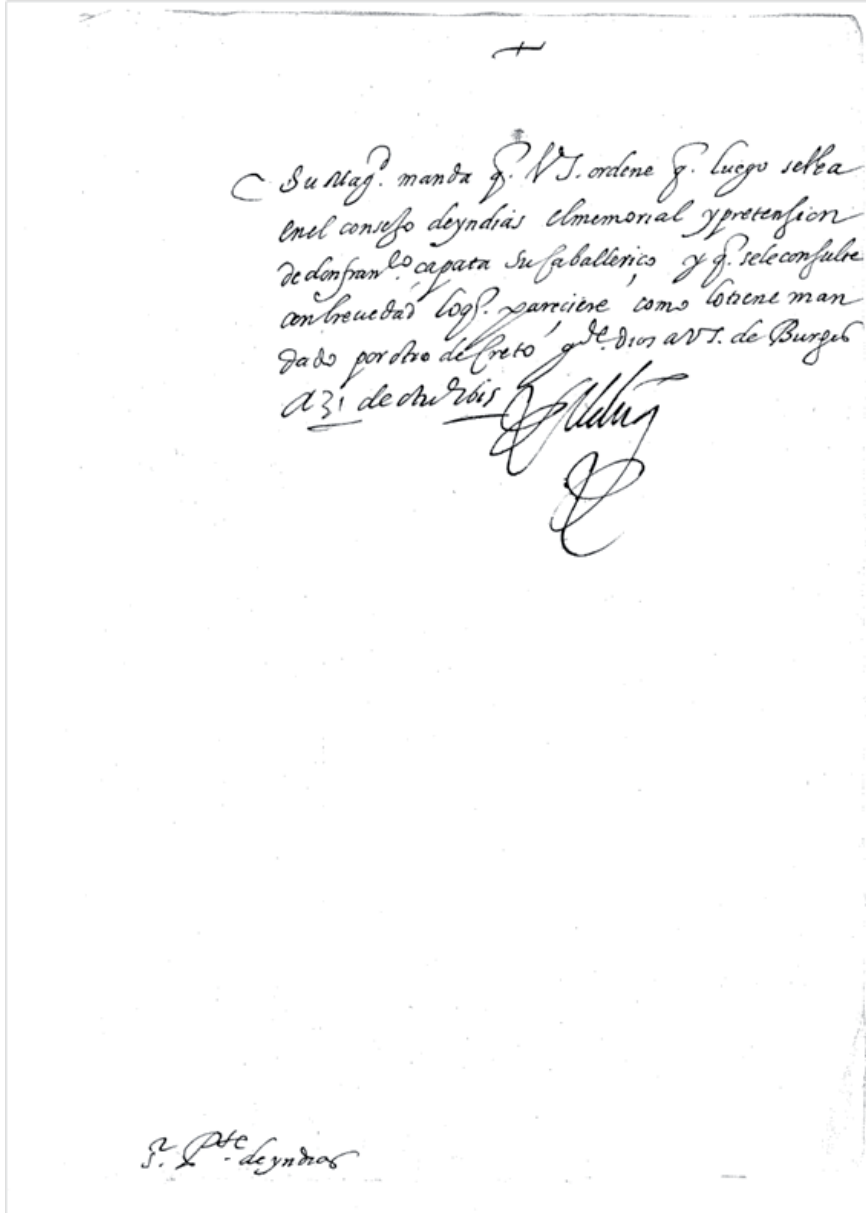 Su Mag.d manda q. VS. ordene q. luego se lea
en el consejo de yndias el memorial y pretension
de don fran.co capata su caballerico y q. se le consulte
con breuedad loq. pareciere como lo tiene man
dado por otro decreto g.de Dios a VS. de Burgos
a 31 de otu.e 1615
s.r P.te de yndias